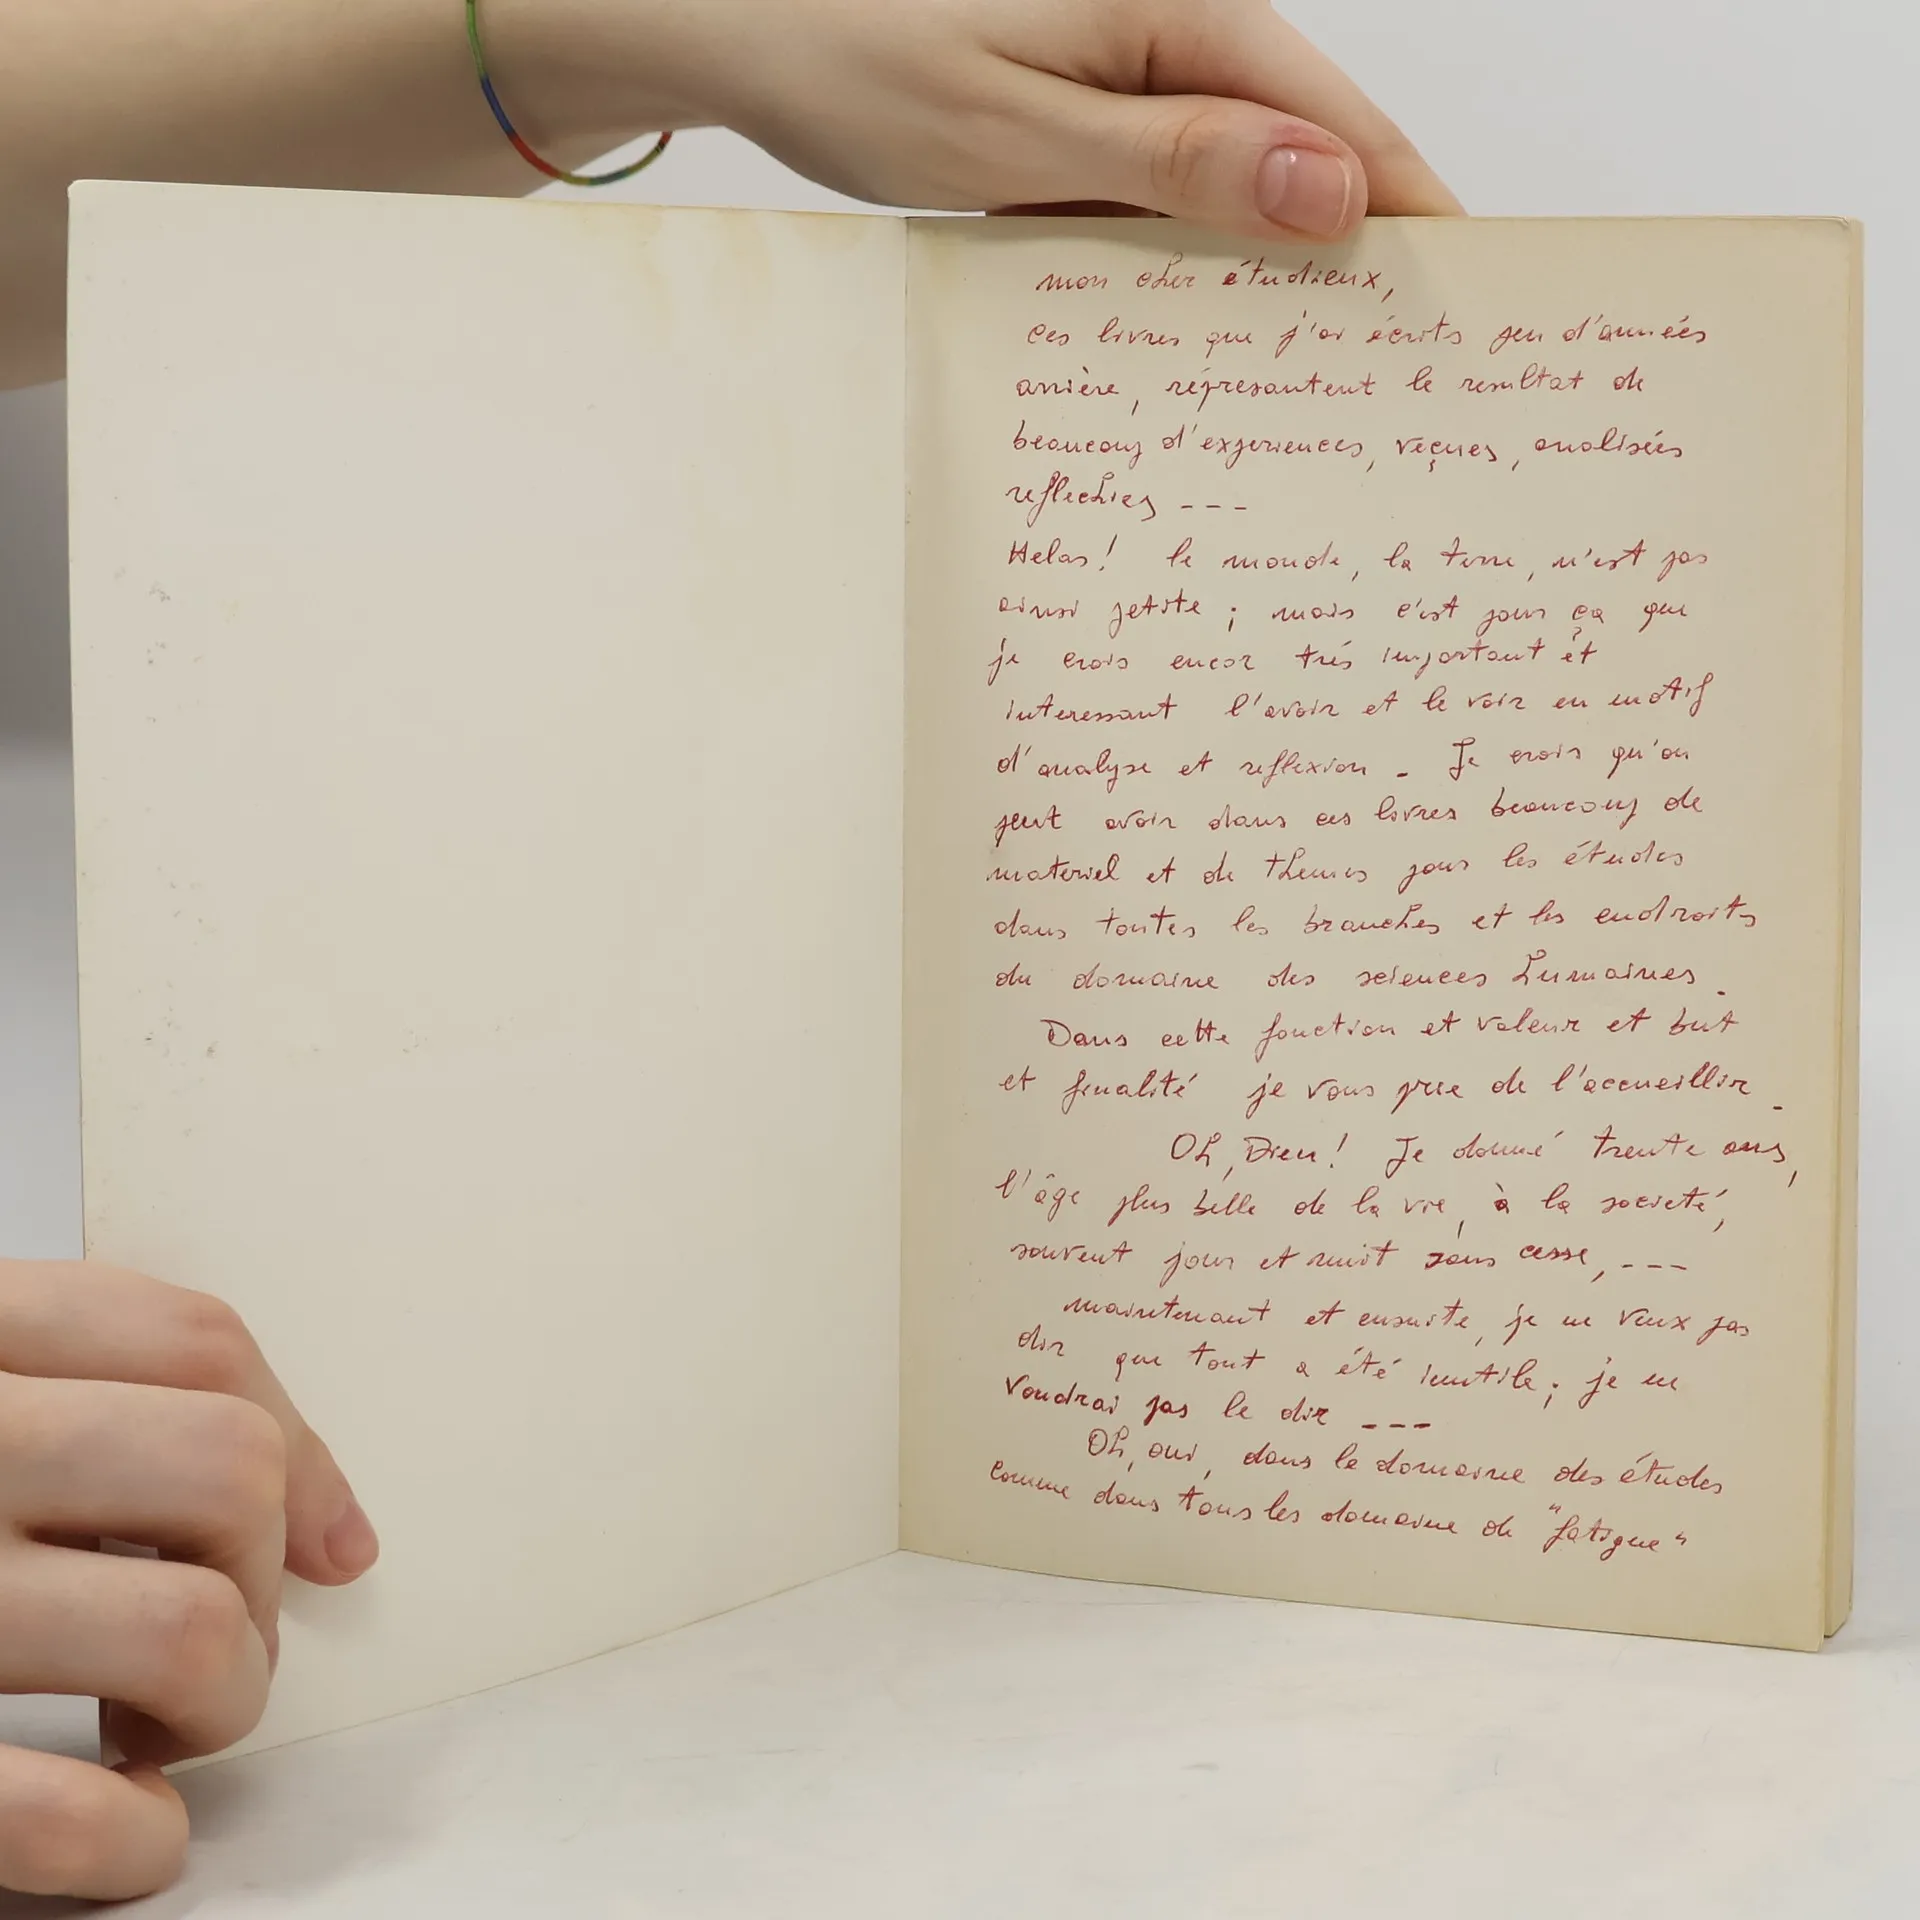 mon cher étudieux,
ces livres que j'ai écrits peu d'années
arrière, répresantent le resultat de
beaucoup d'experiences, veçues, analisées
reflechies ---
Helas! le monde, la terre, n'est pas
ainsi petite; mais c'est pour ça que
je crois encor très important et
interessant l'avoir et le voir en motif
d'analyse et reflexion - Je crois qu'on
peut avoir dans ces livres beaucoup de
materiel et de themes pour les études
dans toutes les branches et les endroits
du domaine des sciences humaines.
Dans cette fonction et valeur et but
et finalité je vous prie de l'accueillir -
Oh, Dieu! Je donné trente ans,
l'âge plus belle de la vie, à la societé,
souvent jour et nuit sans cesse, ---
maintenant et ensuite, je ne veux pas
dir que tout a été inutile; je ne
voudrai pas le dir ---
Oh, oui, dans le domaine des études
comme dans tous les domaine de "fatigue"